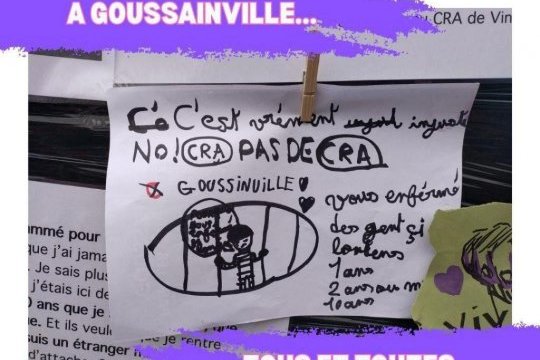 A GOUSSAINVILLE...
u CRA de Vin
C'est vrément
NO! CRA PAS DE CRA
X GOUSSINVILLE
vous enfermé
des gent çi
lontens
1 ans
2 ans ou m
10 ans
mmé pour
que j'ai jama
. Je sais plus
j'étais ici de
0 ans que je
ue. Et ils veule
suis un étranger
je rentre
d'attache
VIV
TOUS ET TOUTES